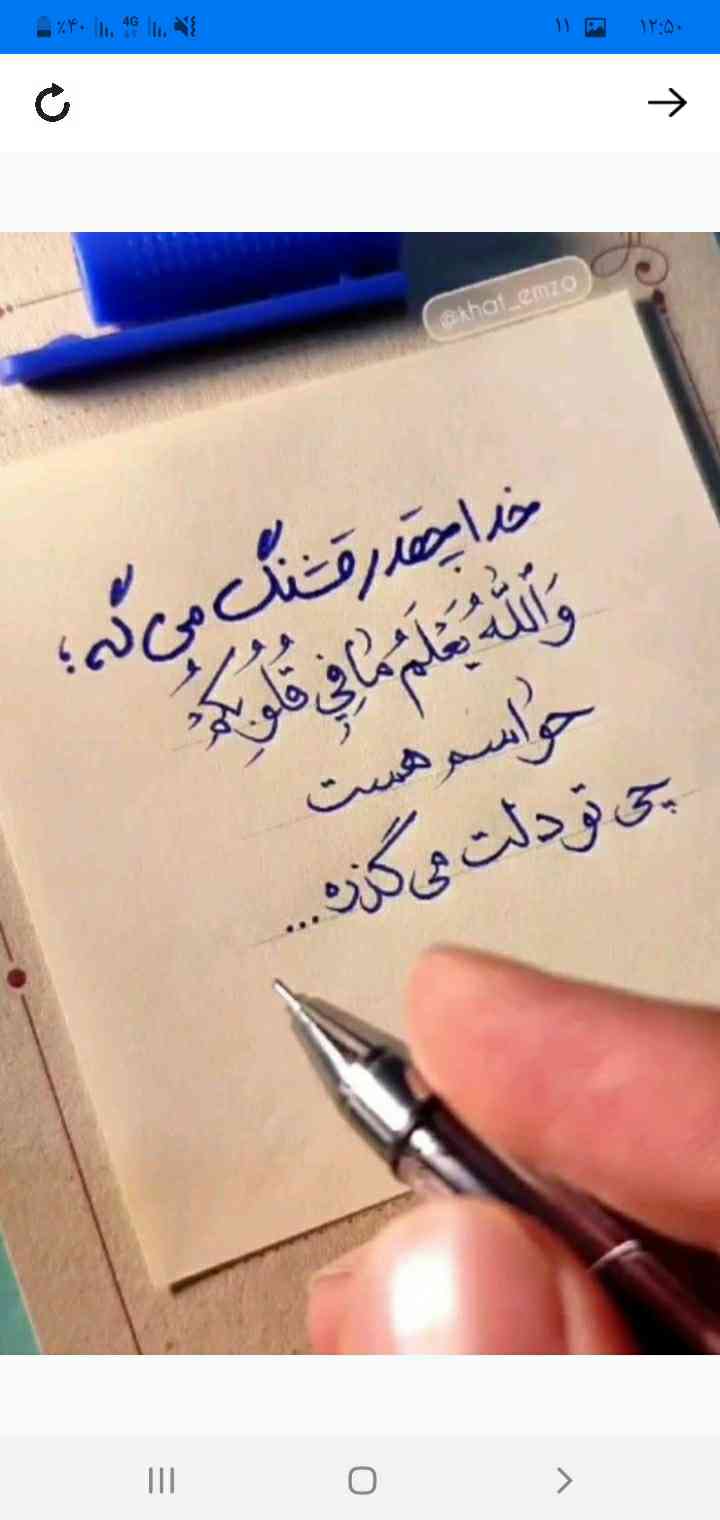 ٪۴۰ 4G ۱۱ ۱۲:۵۰
@khat_emza
خدا چقدر قشنگ می گه؛
وَٱللَّهُ يَعْلَمُ مَا فِي قُلُوبِكُمْ
حواسم هست
چی تو دلت می گذره...